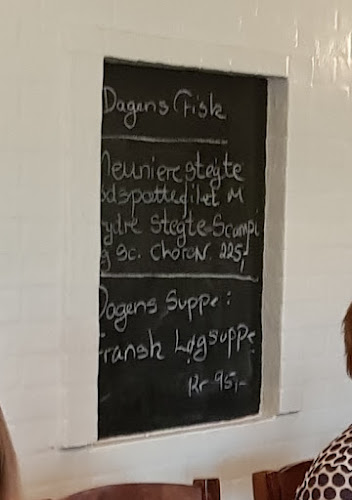 Dagens Fisk
Meunierestegte
dspættefilet M
ydre Stegte Scampi
g Sc. Choron. 225,-
Dagens Suppe:
Fransk Løgsuppe
Kr 95,-